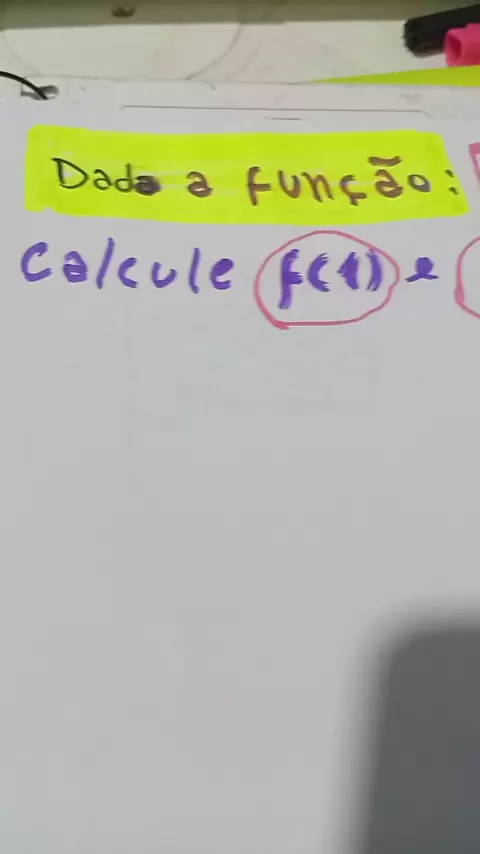 Dada a função:
Calcule f(1) e